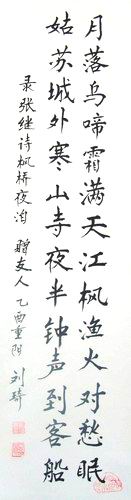 月落乌啼霜满天江枫渔火对愁眠
姑苏城外寒山寺夜半钟声到客船
录张继诗枫桥夜泊 赠友人 乙酉重阳 刘琦